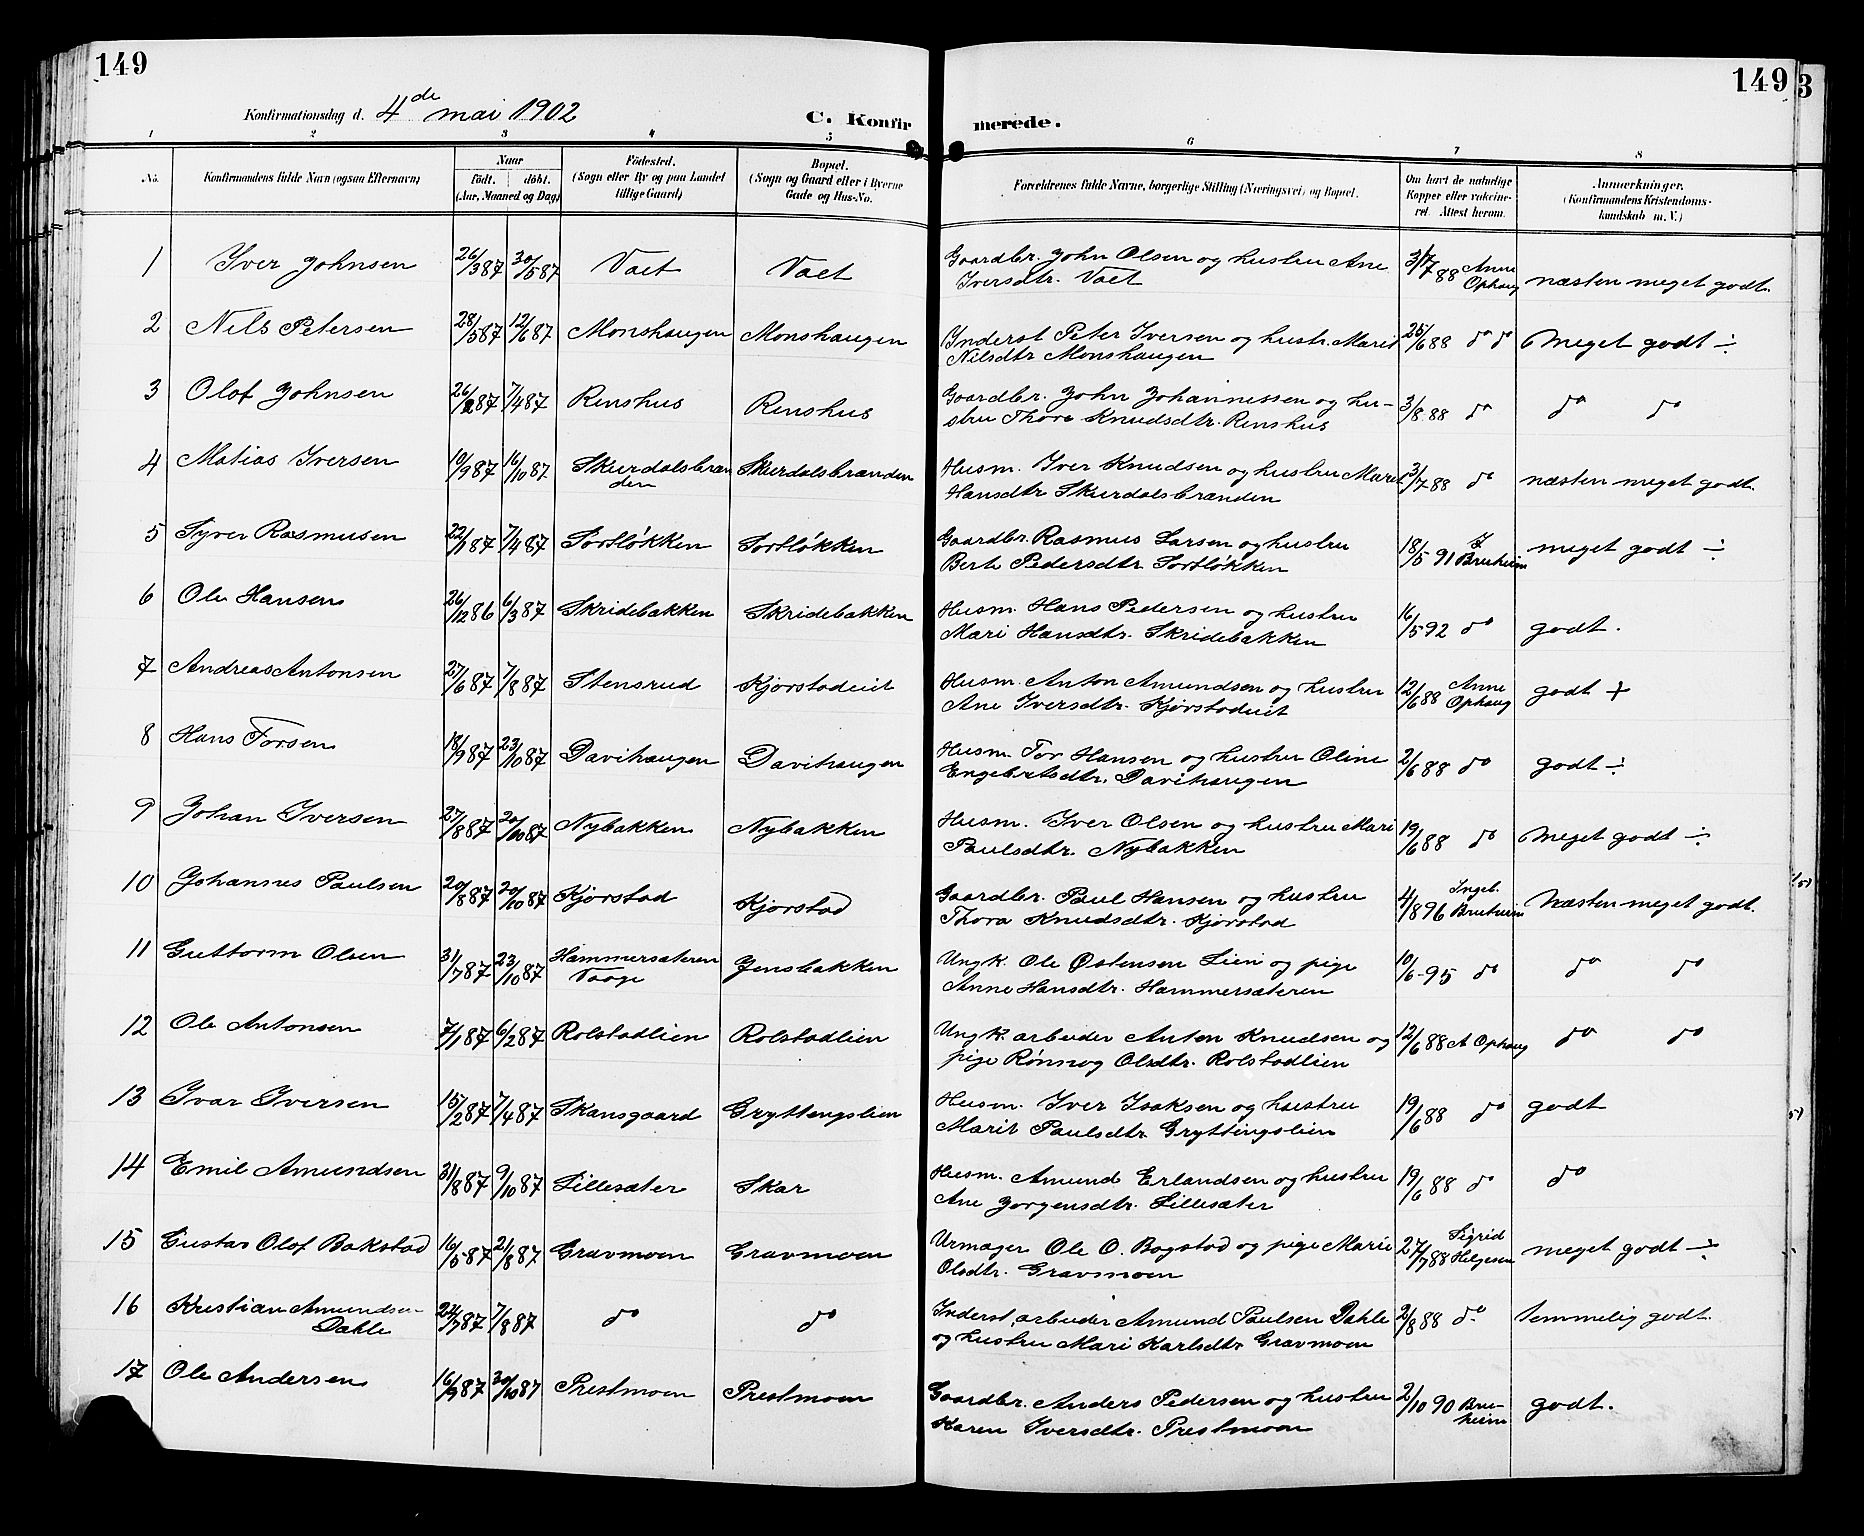 149
149
3
Konfirmationsdag d. 4de mai 1902
C. Konfirmerede.
1 2 3 4 5 6 7 8
No.
Konfirmandens fulde Navn (ogsaa Efternavn)
Naar
født. døbt.
(Aar, Maaned og Dag)
Fødested.
(Sogn eller By og paa Landet
tillige Gaard)
Bopæl.
(Sogn og Gaard eller i Byerne
Gade og Hus-No.
Forældrenes fulde Navne, borgerlige Stilling (Næringsvei) og Bopæl.
Om havt de naturlige
Kopper eller vakcine-
ret. Attest herom.
Anmærkninger.
(Konfirmandens Kristendoms-
kundskab m. V.)
1 Iver Johnsen 26/3 87 30/5 87 Vaet Vaet Gaardbr. John Olsen og hustru Ane
Iversdtr. Vaet 31/7 88 Anne Ophaug næsten meget godt.
2 Nils Petersen 28/5 87 12/6 87 Monshaugen Monshaugen Inderst Peter Iversen og hustr. Marit
Nilsdtr Monshaugen 25/6 88 do do Meget godt ÷
3 Olof Johnsen 26/2 87 7/4 87 Renshus Renshus Gaardbr. John Johannessen og hu-
stru Thora Knudsdtr. Renshus 3/8 88 do do do
4 Matias Iversen 10/9 87 16/10 87 Skurdalsbræn
den Skurdalsbrænden Husm. Iver Knudsen og hustru Marit
Hansdtr Skurdalsbrænden 3/7 88 do næsten meget godt.
5 Syver Rasmusen 22/1 87 7/4 87 Sortløkken Sortløkken Gaardbr. Rasmus Larsen og hustru
Berte Pedersdtr Sortløkken 18/5 91 I Bruheim meget godt ÷
6 Ole Hansen 26/12 86 6/3 87 Skridebakken Skridebakken Husm. Hans Pedersen og hustru
Mari Hansdtr. Skridebakken 16/5 92 do godt.
7 Andreas Antonsen 27/6 87 7/8 87 Stensrud Kjørstadeiet Husm. Anton Amundsen og hustru
Ane Iversdtr. Kjørstadeiet 12/6 88 Anne Ophaug godt +
8 Hans Torsen 18/9 87 23/10 87 Davihaugen Davihaugen Husm. Tor Hansen og hustru Oline
Engebretsdtr. Davihaugen 2/6 88 do godt ÷
9 Johan Iversen 27/8 87 20/10 87 Nybakken Nybakken Husm. Iver Olsen og hustru Mari
Paulsdtr. Nybakken 19/6 88 do Meget godt ÷
10 Johannes Paulsen 20/8 87 20/10 87 Kjørstad Kjørstad Gaardbr. Paul Hansen og hustru
Thora Knudsdtr. Kjørstad 4/8 96 Ingeb. Bruheim Næsten meget godt.
11 Guttorm Olsen 31/7 87 23/10 87 Hammersæteren
Vaage Jensbakken Ungk. Ole Østensen Lien og pige
Anne Hansdtr. Hammersæteren 10/6 95 do do do
12 Ole Antonsen 7/1 87 6/2 87 Rolstadlien Rolstadlien Ungk. arbeider Anton Knudsen og
pige Rønnog Olsdtr. Rolstadlien 12/6 88 A Ophaug do do
13 Ivar Iversen 15/2 87 7/4 87 Skansgaard Gryttingslien Husm. Iver Isaksen og hustru
Marit Paulsdtr Gryttingslien 19/6 88 do godt
14 Emil Amundsen 31/8 87 9/10 87 Lillesæter Skar Husm. Amund Erlandsen og hustru
Ane Jorgensdtr. Lillesæter 19/6 88 do do
15 Gustav Olof Bakstad 16/5 87 21/8 87 Gravmoen Gravmoen Urmager Ole O. Bagstad og pige Marie
Olsdtr. Gravmoen 27/7 88 Sigrid Helgesen meget godt ÷
16 Kristian Amundsen
Dahle 24/7 87 7/8 87 do do Inderst, arbeider Amund Paulsen Dahle
og hustru Mari Karlsdtr Gravmoen 2/8 88 do temmelig godt.
17 Ole Andersen 16/9 87 30/10 87 Prestmoen Prestmoen Gaardbr. Anders Pedersen og hustru
Karen Iversdtr. Prestmoen 2/10 90 Bru-
heim godt.